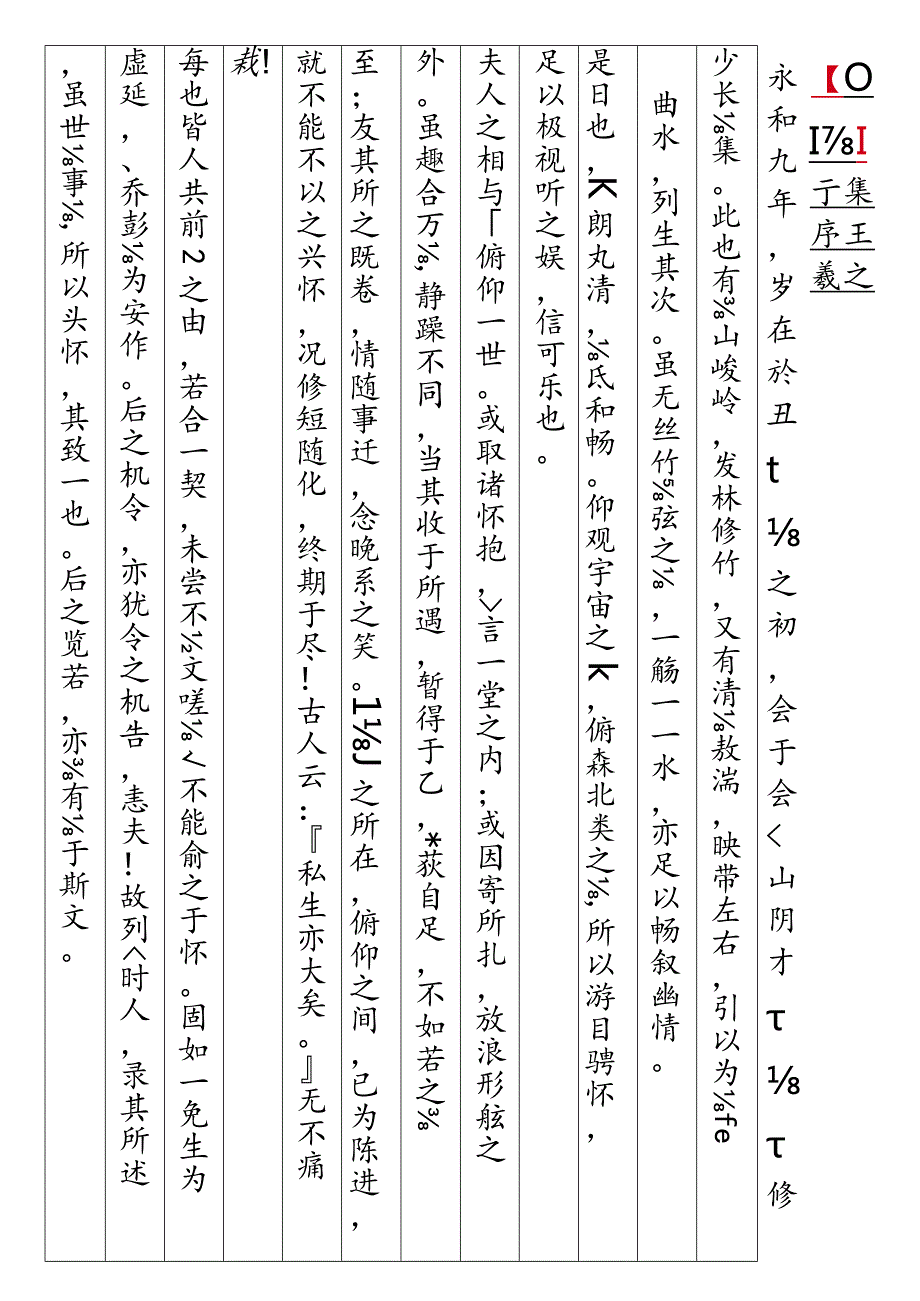 【O
I⅞I
亍集
序王
羲之
永和九年，岁在於丑t⅛之初，会于会<山阴才τ⅛τ修
少长⅛集。此也有⅜山峻岭，发林修竹，又有清⅛敖湍，映带左右，引以为⅛fe
曲水，列生其次。虽无丝竹⅝弦之⅛，一觞一一水，亦足以畅叙幽情。
是日也，K朗丸清，⅛氐和畅。仰观宇宙之K，俯森北类之⅛,所以游目骋怀，
足以极视听之娱，信可乐也。
夫人之相与「俯仰一世。或取诸怀抱，＞言一堂之内；或因寄所扎，放浪形舷之
外。虽趣合万⅛,静躁不同，当其收于所遇，暂得于乙，*荻自足，不如若之⅜
至；友其所之既卷，情随事迁，念晚系之笑。1⅛J之所在，俯仰之间，已为陈进，
就不能不以之兴怀，况修短随化，终期于尽！古人云：『私生亦大矣。』无不痛
栽!
每也皆人共前2之由，若合一契，未尝不½文嗟⅛<不能俞之于怀。固如一免生为
虚延，、乔彭⅛为安作。后之机令，亦犹令之机告，恚夫！故列<时人，录其所述
，虽世⅛事⅛,所以头怀，其致一也。后之览若，亦⅜有⅛于斯文。